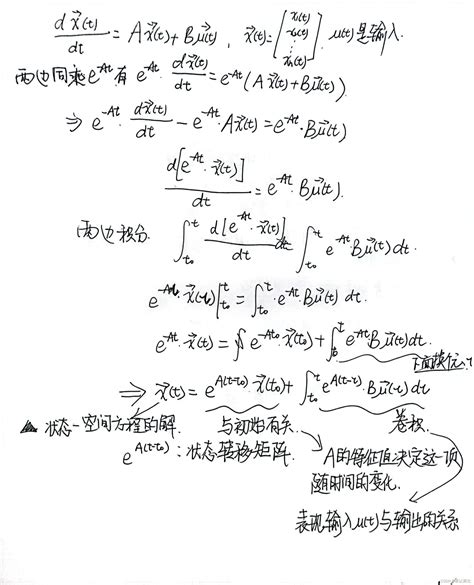 dx⃗(t)/dt = Ax⃗(t)+Bu⃗(t), x⃗(t)=[x₁(t) x₂(t) ⋮ xₙ(t)], u(t)是输入.
两边同乘e^{-At}有 e^{-At}·dx⃗(t)/dt = e^{-At}(Ax⃗(t)+Bu⃗(t))
⇒ e^{-At}·dx⃗(t)/dt − e^{-At}·Ax⃗(t) = e^{-At}·Bu⃗(t)
d[e^{-At}·x⃗(t)]/dt = e^{-At}·Bu⃗(t).
两边积分. ∫_{t₀}^{t} d[e^{-At}·x⃗(t)]/dt ∫_{t₀}^{t} e^{-At}·Bu⃗(t)dt.
x⃗(t)|_{t₀}^{t} = ∫_{t₀}^{t}·e^{-At}·Bu⃗(t) dt.
e^{-At}·x⃗(t) = e^{-At₀}·x⃗(t₀)+∫_{t₀}^{t} e^{-At}Bu⃗(t)dt.
下面换元
⇒ x⃗(t) = e^{A(t-t₀)}·x⃗(t₀)+∫_{t₀}^{t} e^{A(t-τ)}·Bu⃗(τ)dτ
▲ 状态-空间方程的解. 与初始有关. 卷积.
e^{A(t-t₀)}:状态转移矩阵. A的特征值决定这一项
随时间的变化.
表现输入u(t)与输出的关系